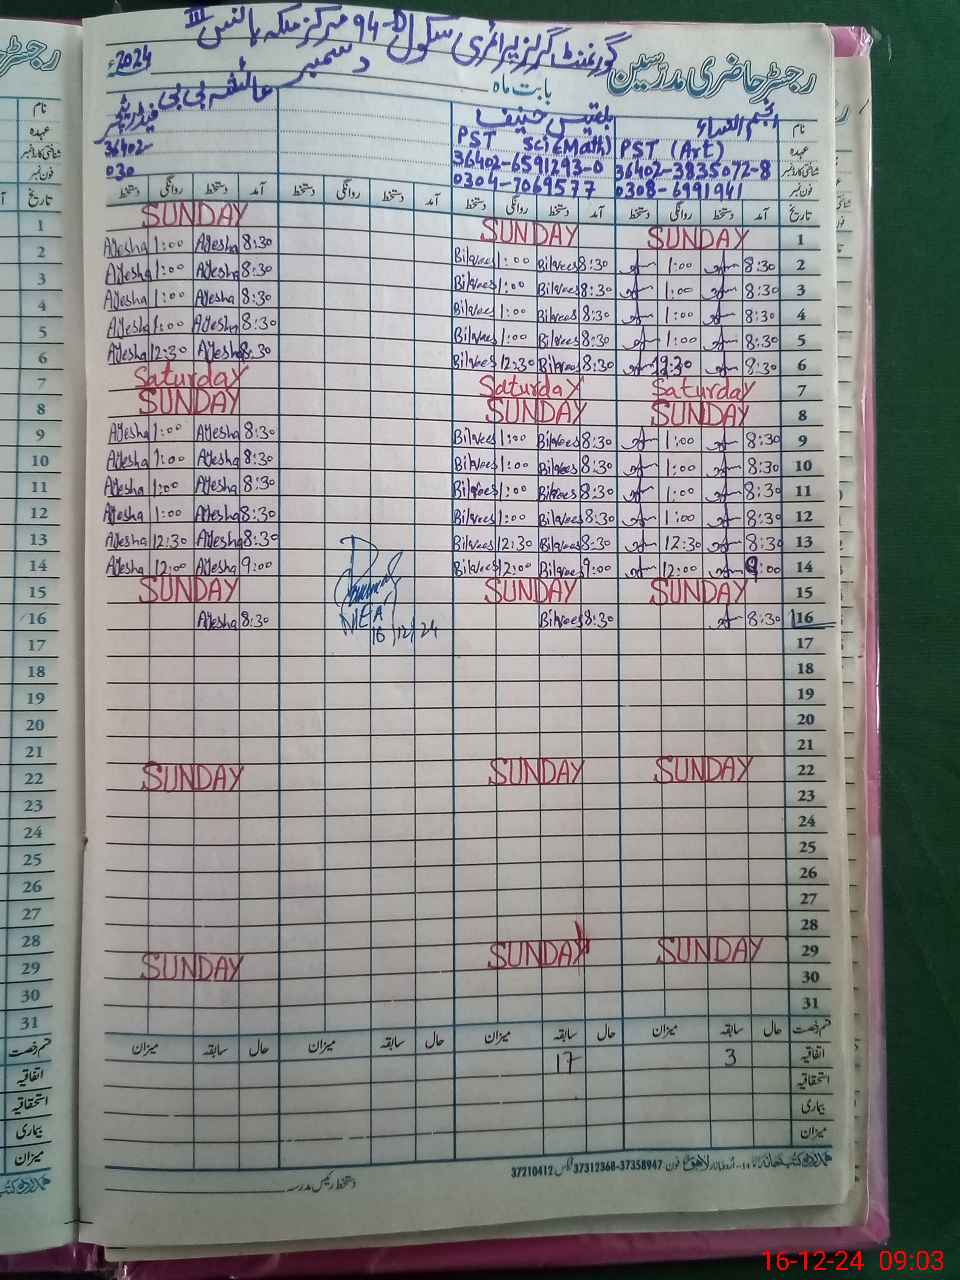 گورنمنٹ گرلز پرائمری سکول 94-D مرکز ملکہ ہانس III
رجسٹر حاضری مدرسین
بابت ماہ دسمبر 2024ء
نام انجم النساء بلقیس حنیف عائشہ بی بی
عہدہ PST (Art) PST Sci (Math)
شناختی کارڈ نمبر 36402-3835072-8 36402-6591293-0 36402
فون نمبر 0308-6991941 0304-7069577 030
تاریخ آمد دستخط روانگی دستخط آمد دستخط روانگی دستخط آمد دستخط روانگی دستخط آمد دستخط روانگی دستخط
1 SUNDAY SUNDAY SUNDAY
2 8:30 1:00 8:30 Bilqees 1:00 Bilqees 8:30 Ayesha 1:00 Ayesha
3 8:30 1:00 8:30 Bilqees 1:00 Bilqees 8:30 Ayesha 1:00 Ayesha
4 8:30 1:00 8:30 Bilqees 1:00 Bilqees 8:30 Ayesha 1:00 Ayesha
5 8:30 1:00 8:30 Bilqees 1:00 Bilqees 8:30 Ayesha 1:00 Ayesha
6 8:30 12:30 8:30 Bilqees 12:30 Bilqees 8:30 Ayesha 12:30 Ayesha
7 Saturday Saturday Saturday
8 SUNDAY SUNDAY SUNDAY
9 8:30 1:00 8:30 Bilqees 1:00 Bilqees 8:30 Ayesha 1:00 Ayesha
10 8:30 1:00 8:30 Bilqees 1:00 Bilqees 8:30 Ayesha 1:00 Ayesha
11 8:30 1:00 8:30 Bilqees 1:00 Bilqees 8:30 Ayesha 1:00 Ayesha
12 8:30 1:00 8:30 Bilqees 1:00 Bilqees 8:30 Ayesha 1:00 Ayesha
13 8:30 12:30 8:30 Bilqees 12:30 Bilqees 8:30 Ayesha 12:30 Ayesha
14 9:00 12:00 9:00 Bilqees 12:00 Bilqees 9:00 Ayesha 12:00 Ayesha
15 SUNDAY SUNDAY SUNDAY
16 8:30 8:30 Bilqees 8:30 Ayesha
MEA
16/12/24
17
18
19
20
21
22 SUNDAY SUNDAY SUNDAY
23
24
25
26
27
28
29 SUNDAY SUNDAY SUNDAY
30
31
قسم رخصت حال سابقہ میزان حال سابقہ میزان حال سابقہ میزان حال سابقہ میزان
اتفاقیہ 3 17
استحقاقیہ
بیماری
میزان
دستخط رئیس مدرسہ
فون 37312368-37358947 فیکس 37210412
16-12-24 09:03